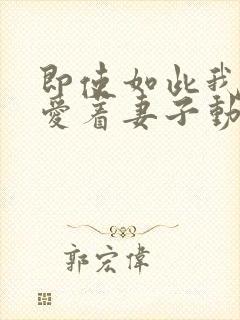 即使如此我
愛着妻子動
郭宏偉